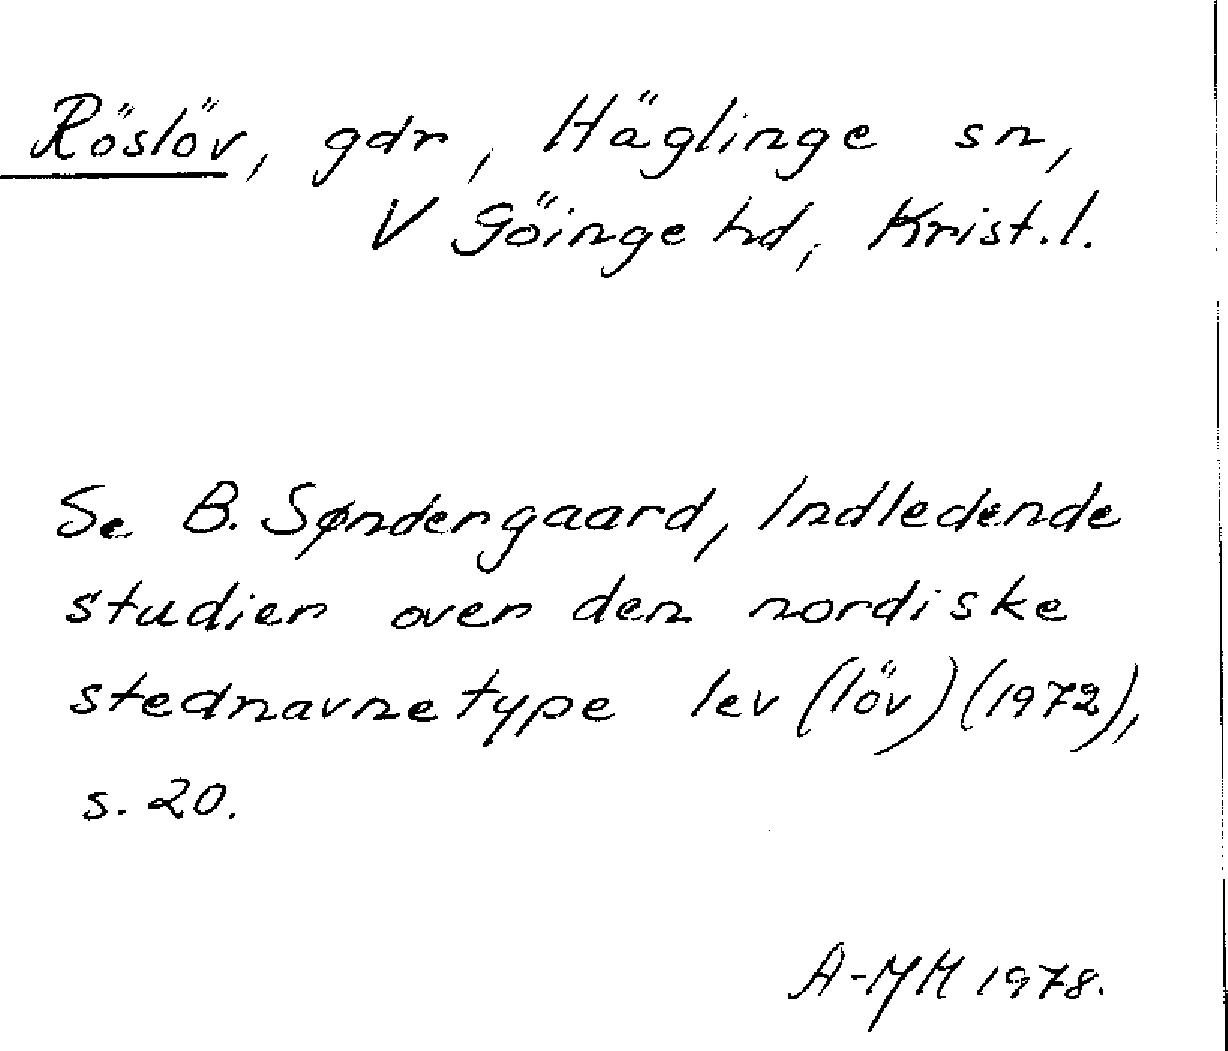 Röslöv, gdr, Häglinge sn,
V Göinge hd, Krist.l.
Se B. Søndergaard, Indledende
studier over den nordiske
stednavnetype lev (löv) (1972),
s. 20.
A-MH 1978.